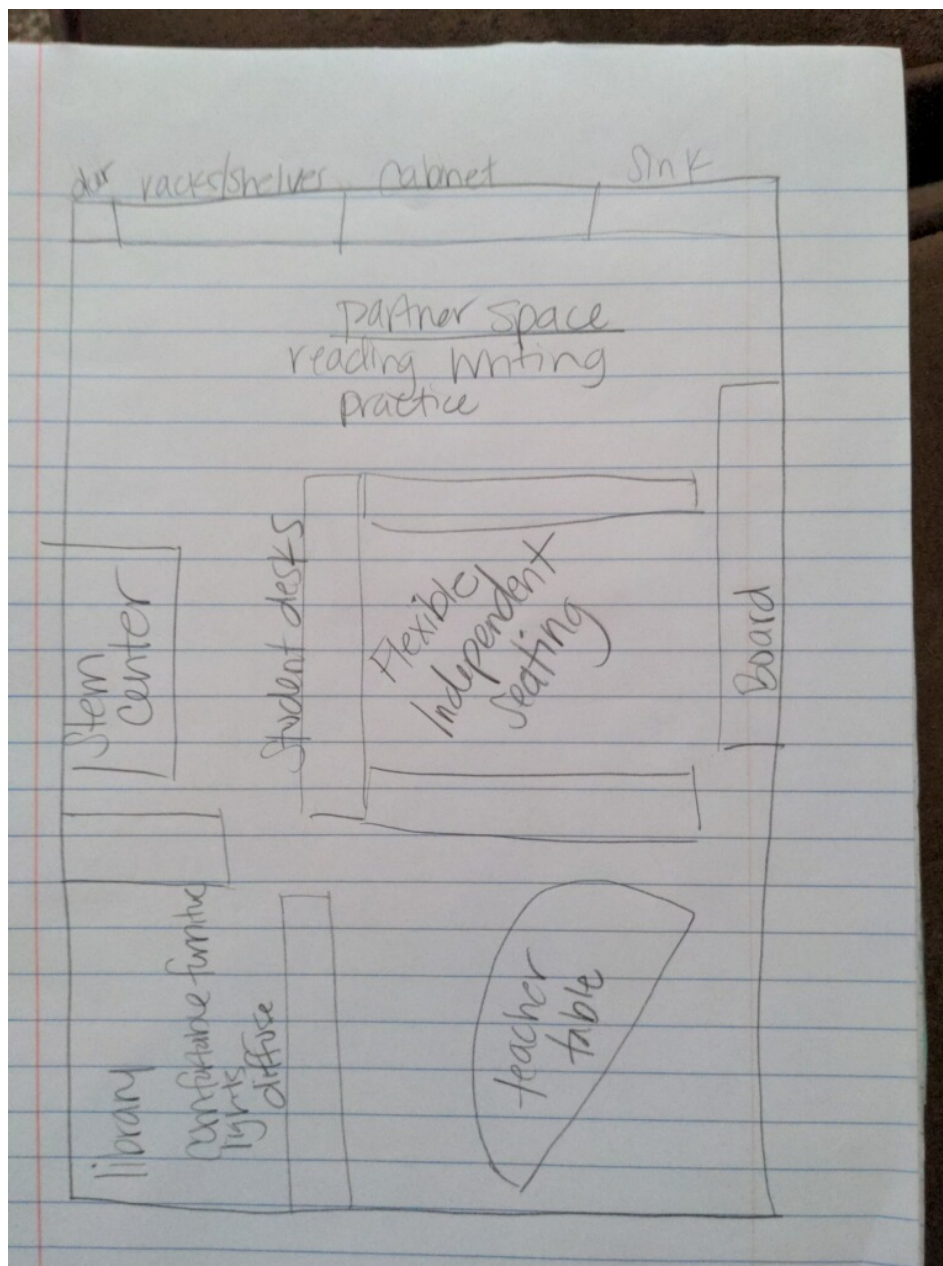 racks/shelves
cabnet
Sink
partner space
reading writing
practice
Stem
center
Student desks
Flexible
Independent
Seating
Board
library
comfortable furnitue
lights
diffuse
teacher
table